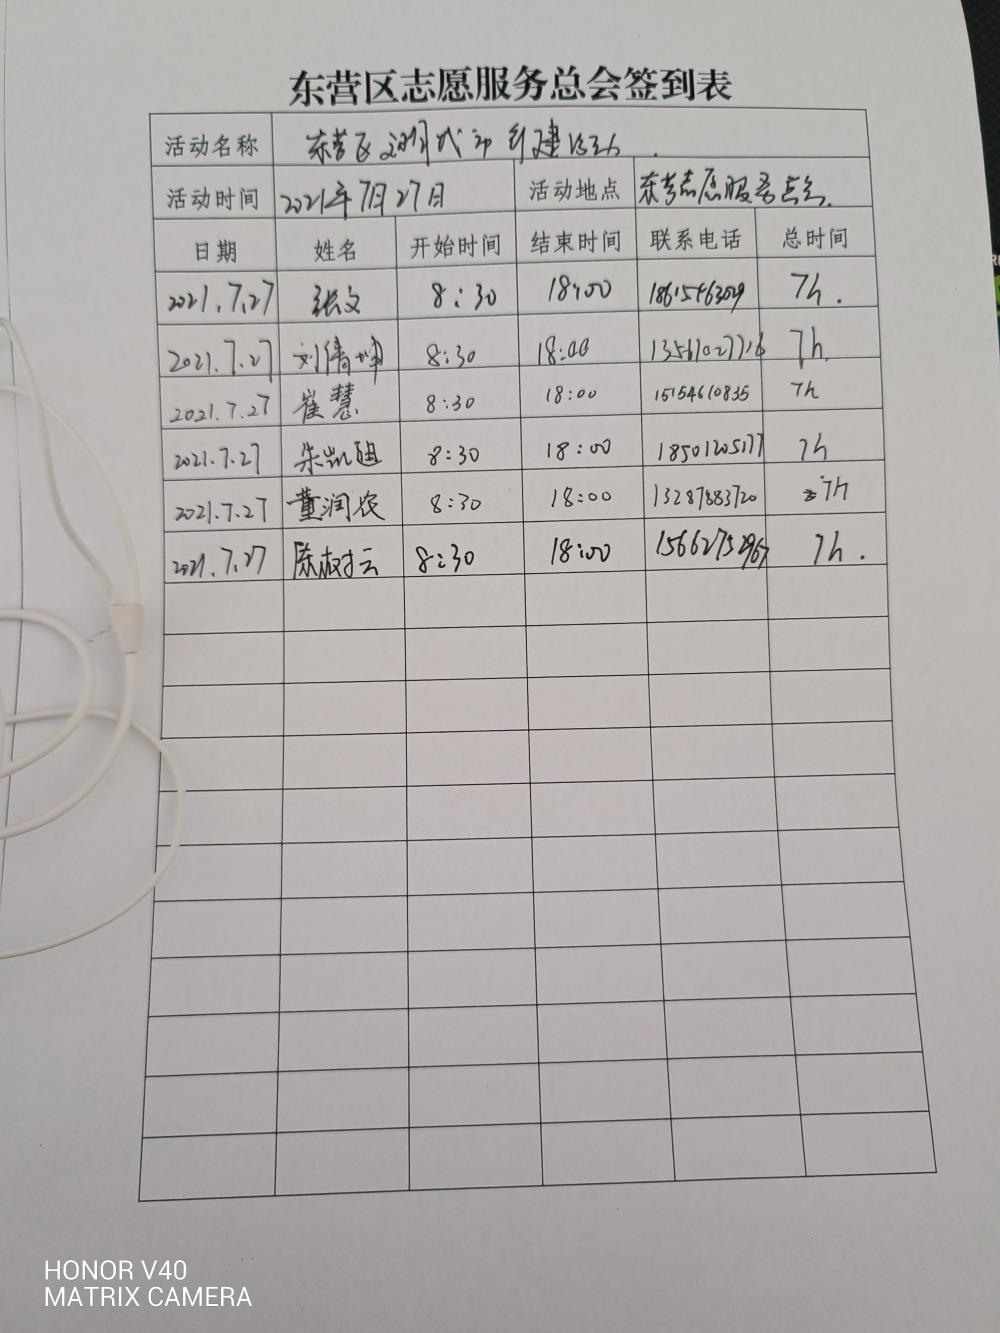 东营区志愿服务总会签到表
活动名称 东营区文明城市创建活动
活动时间 2021年7月27日 活动地点 东营志愿服务总会
日期 姓名 开始时间 结束时间 联系电话 总时间
2021.7.27 张文 8:30 18:00 7h.
2021.7.27 刘倩坤 8:30 18:00 13561027716 7h.
2021.7.27 崔慧 8:30 18:00 15154610835 7h
2021.7.27 朱凯迪 8:30 18:00 18501205177 7h
2021.7.27 董润农 8:30 18:00 13287883720 7h
2021.7.27 陈树云 8:30 18:00 15662752967 7h.
HONOR V40
MATRIX CAMERA